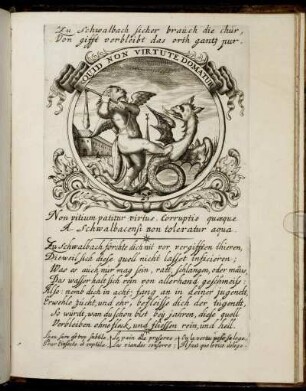 Zu Schwalbach sicher brauch die chur,
Von gifft verbleibt das orth gantz pur.
QUID NON VIRTUTE DOMATUR
Non vitium patitur virtus, Corruptio quæque
A Schwalbacensi non toleratur aqua
Zu Schwalbach förchte dich nit vor vergifften thieren,
Dieweil sich diese quell nicht lasset inficieren;
Was es auch nur mag sein, ratt, schlangen, oder meüs,
Das wasser halt sich rein von allerhand geschmeis:
Also nemb dich in acht, fang an in deiner jugendt,
Erwehle zucht, und ehr, befleisse dich der tugendt,
So würdt, wan du schon bist bey jahren, diese quell
Verbleiben ohne fleck, und fliessen rein, und hell.